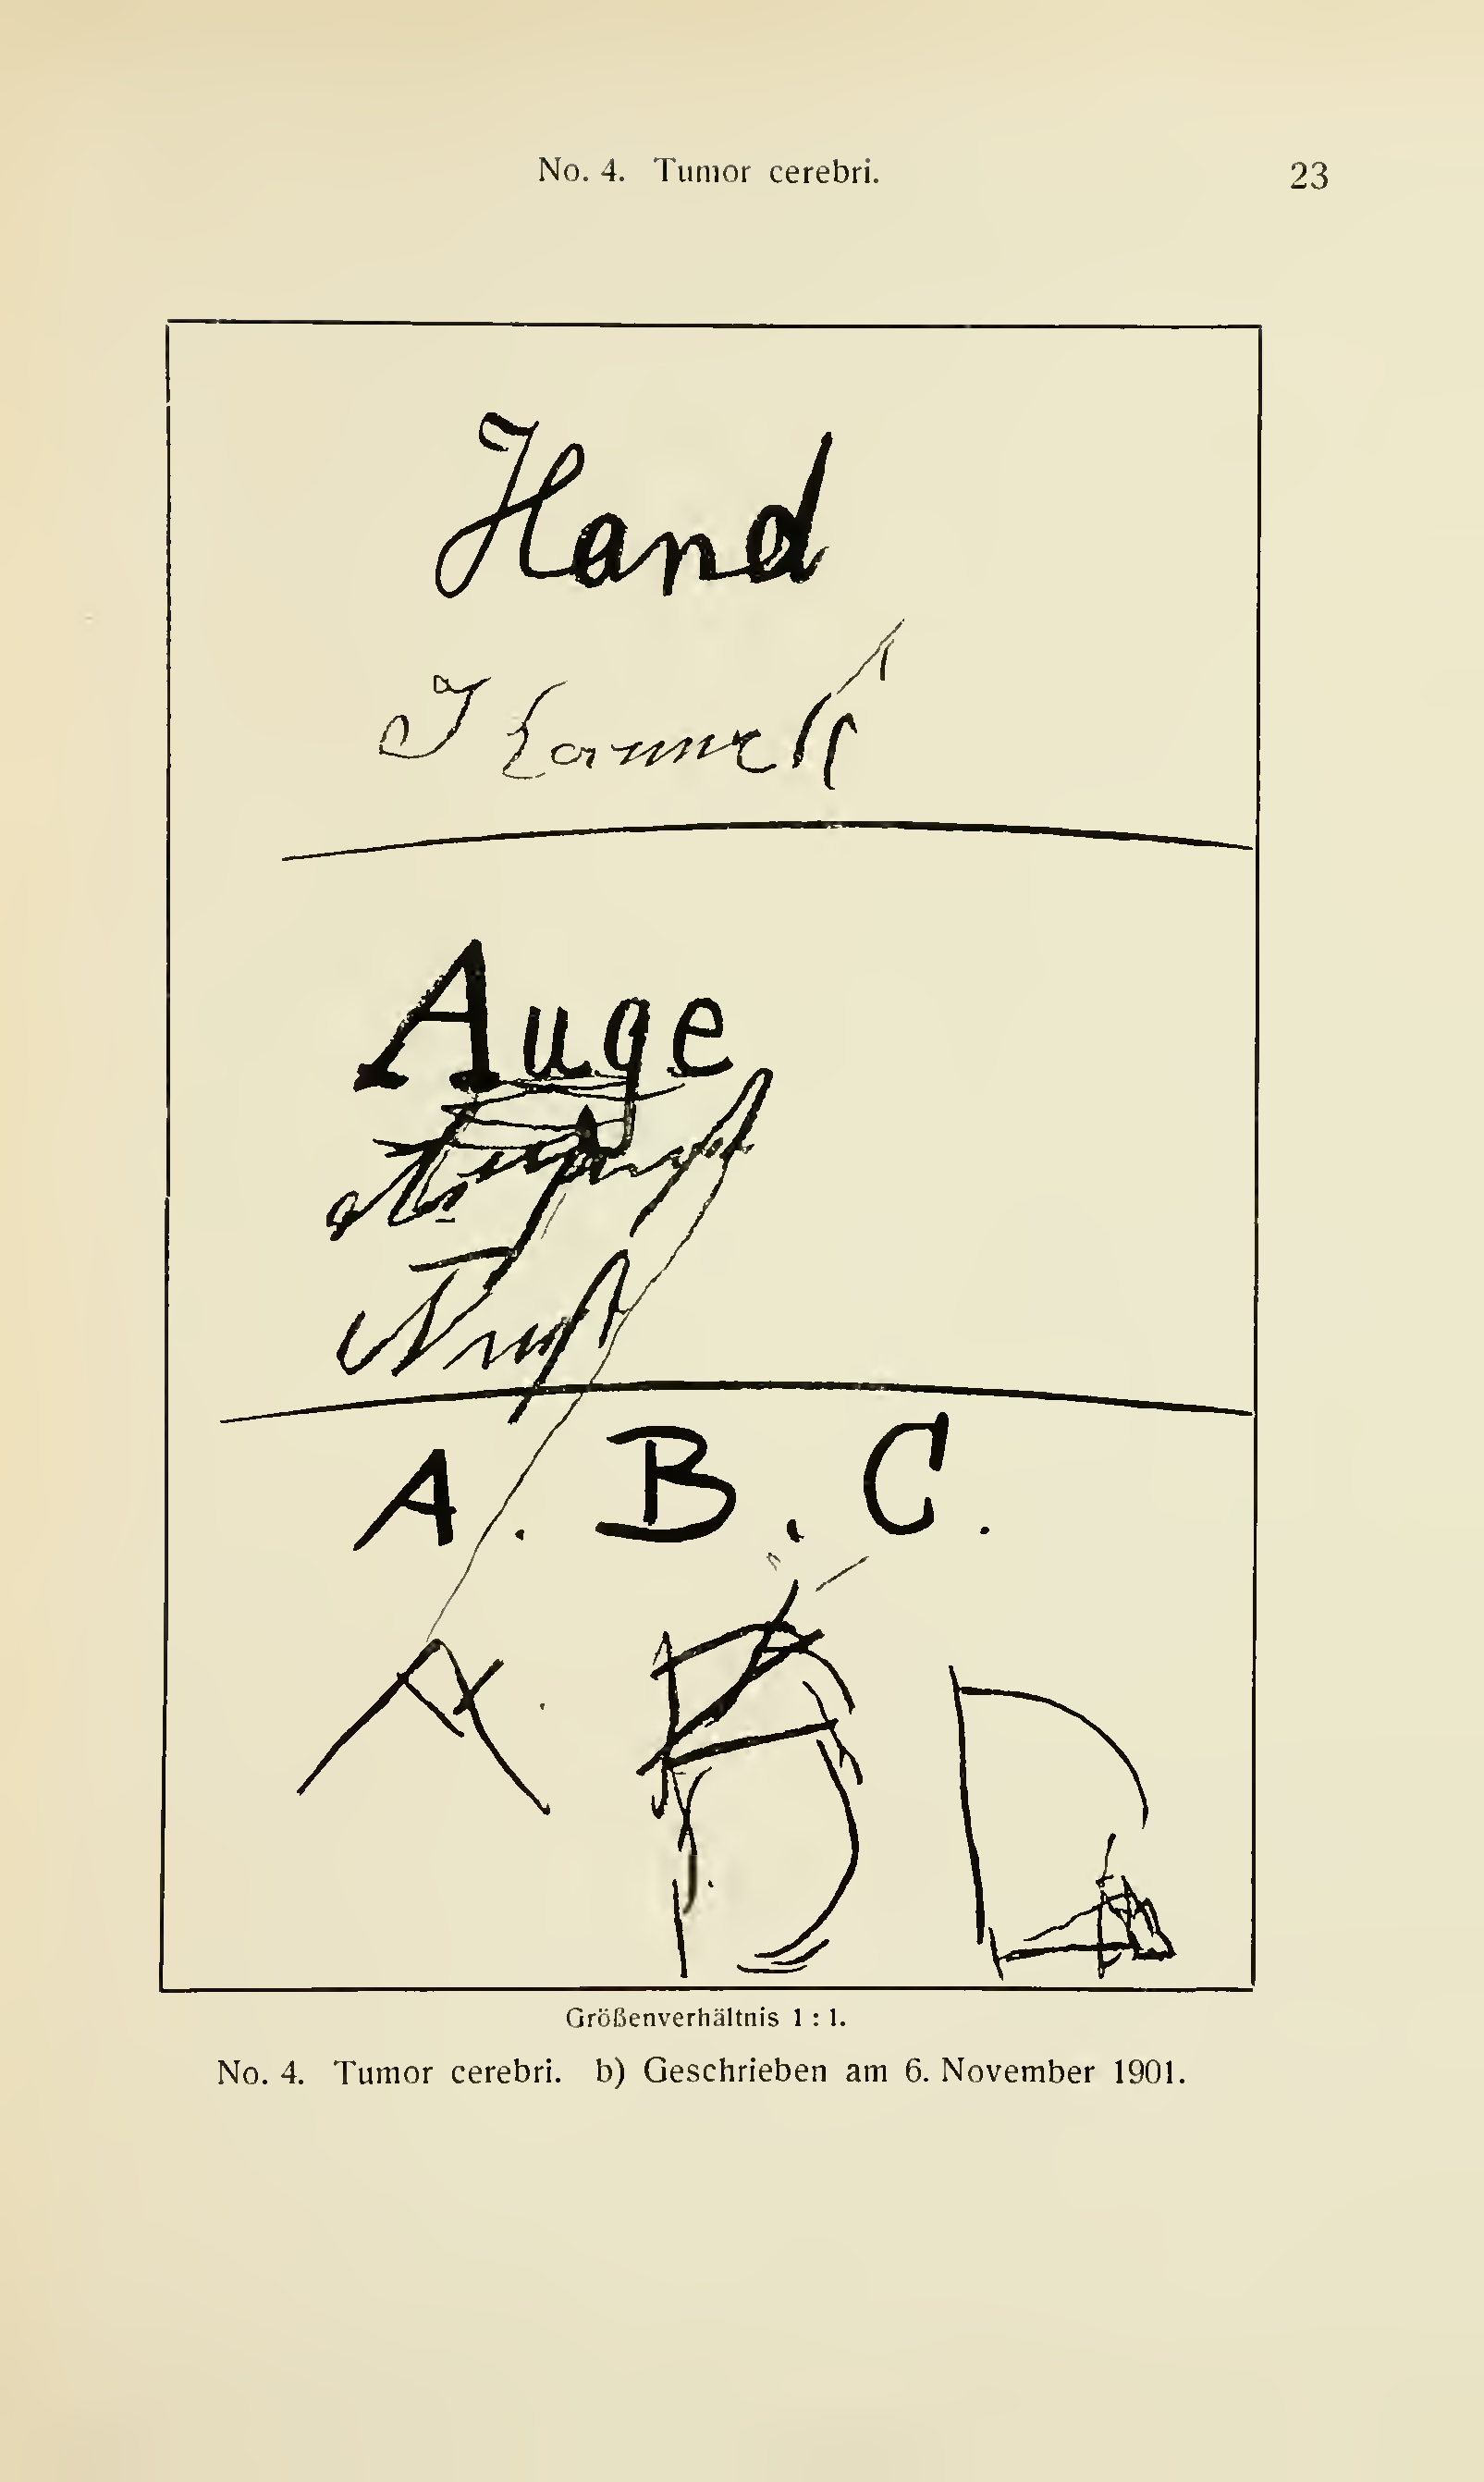 No. 4. Tumor cerebri. 23
Hand
Auge
A. B. C.
A. B D
Größenverhältnis 1 : 1.
No. 4. Tumor cerebri. b) Geschrieben am 6. November 1901.